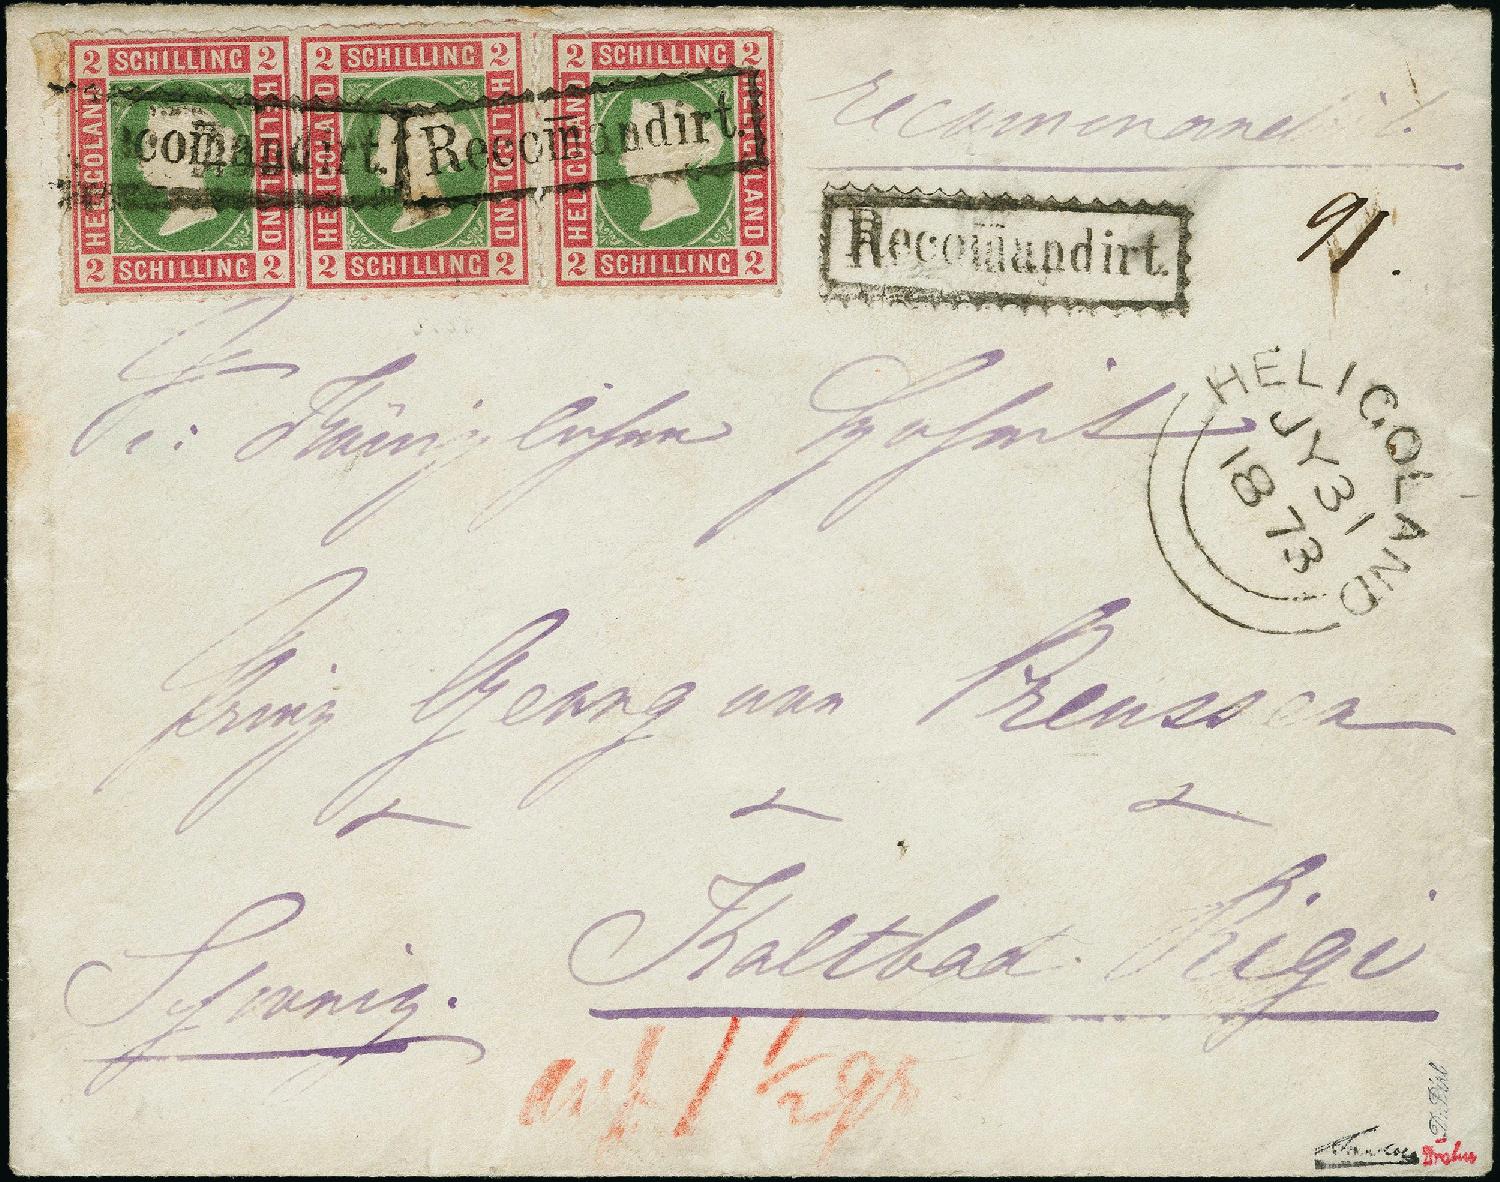 2 SCHILLING 2 2 SCHILLING 2 2 SCHILLING 2
HELIGOLAND HELIGOLAND HELIGOLAND HELIGOLAND HELIGOLAND HELIGOLAND
2 SCHILLING 2 2 SCHILLING 2 2 SCHILLING 2
ecom̅andirt. Recom̅andirt.
recommandirt.
Recom̅andirt.
91.
HELIGOLAND
JY 31
1873
Sr: Königlichen Hoheit
Prinz Georg von Preussen
Kaltbad. Rigi
Schweiz.
auf 1 1/2 gr